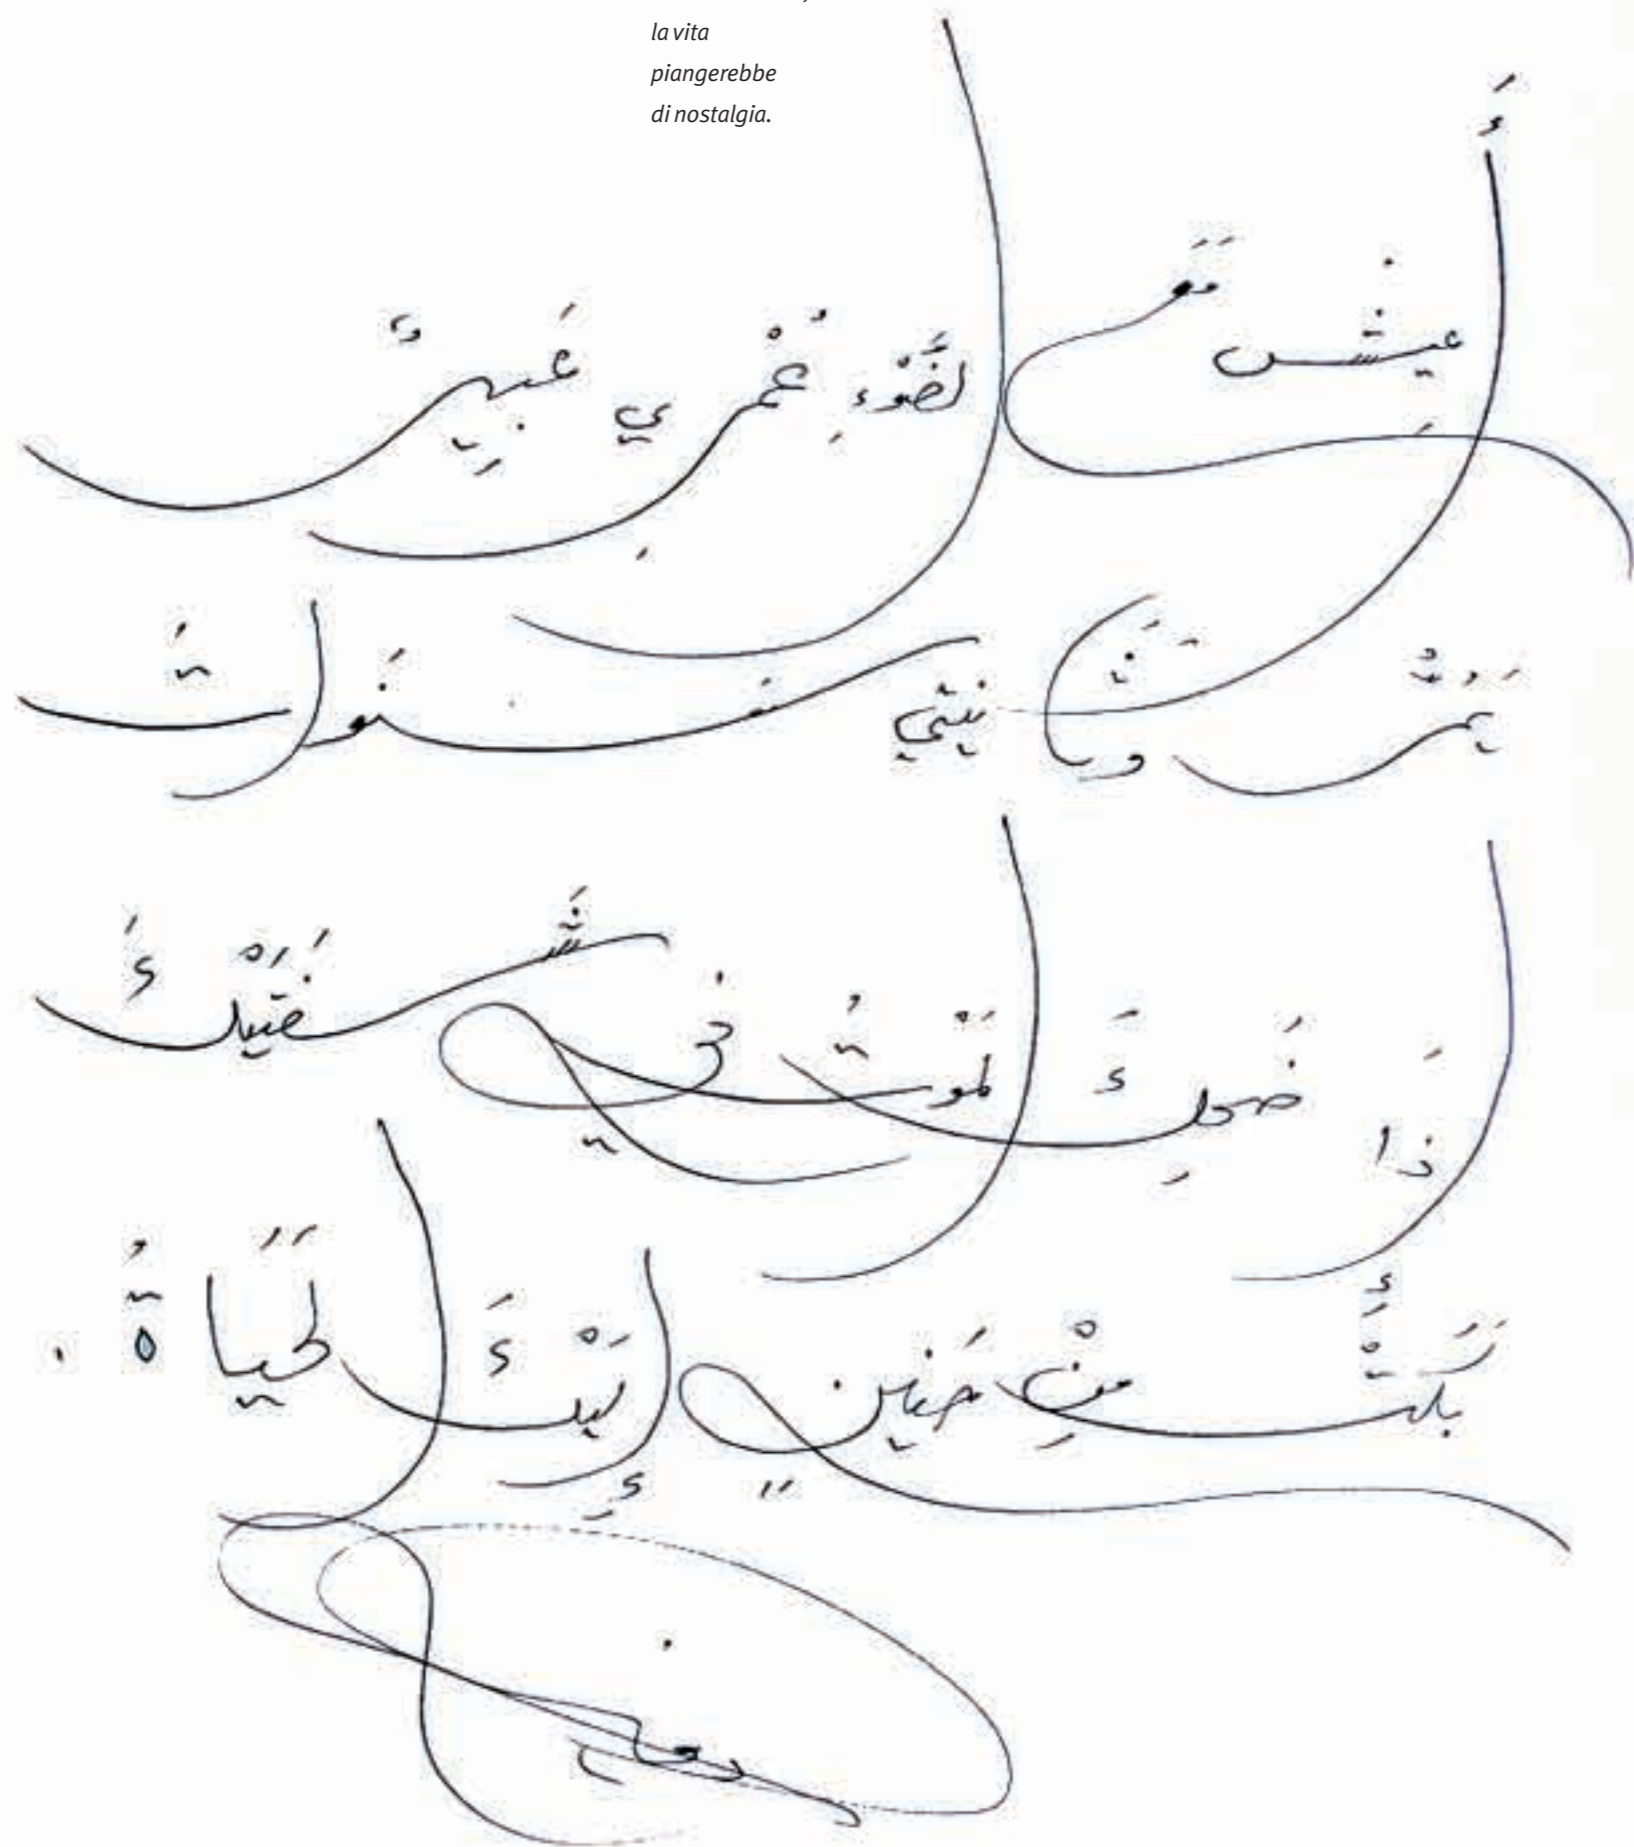 la vita
piangerebbe
di nostalgia.
أَعِيش مَعَ الضَّوْءِ عُمْرِي عَبِيرٌ
يَمُرُّ وثَانيتي سَنَواتَ
اذَا ضَحِكَ الْمَوْتُ في شَفَتَيْكَ
بَكَتْ مِنْ حَنينٍ إِلَيْكَ الحَيَاةُ .